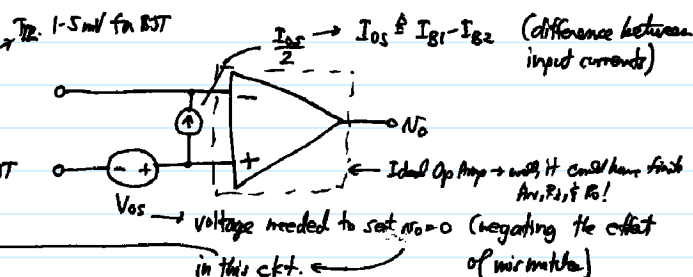 Typ. 1-5 mV for BJT
I_OS/2 → I_OS ≜ I_B1 - I_B2 (difference between
input currents)
-
+
v_o
BJT
- +
V_OS
← Ideal Op Amp → well, it could have finite
Av, Ri, & Ro!
→ voltage needed to set v_o=0 (negating the effect
of mismatches)
in this ckt. ←